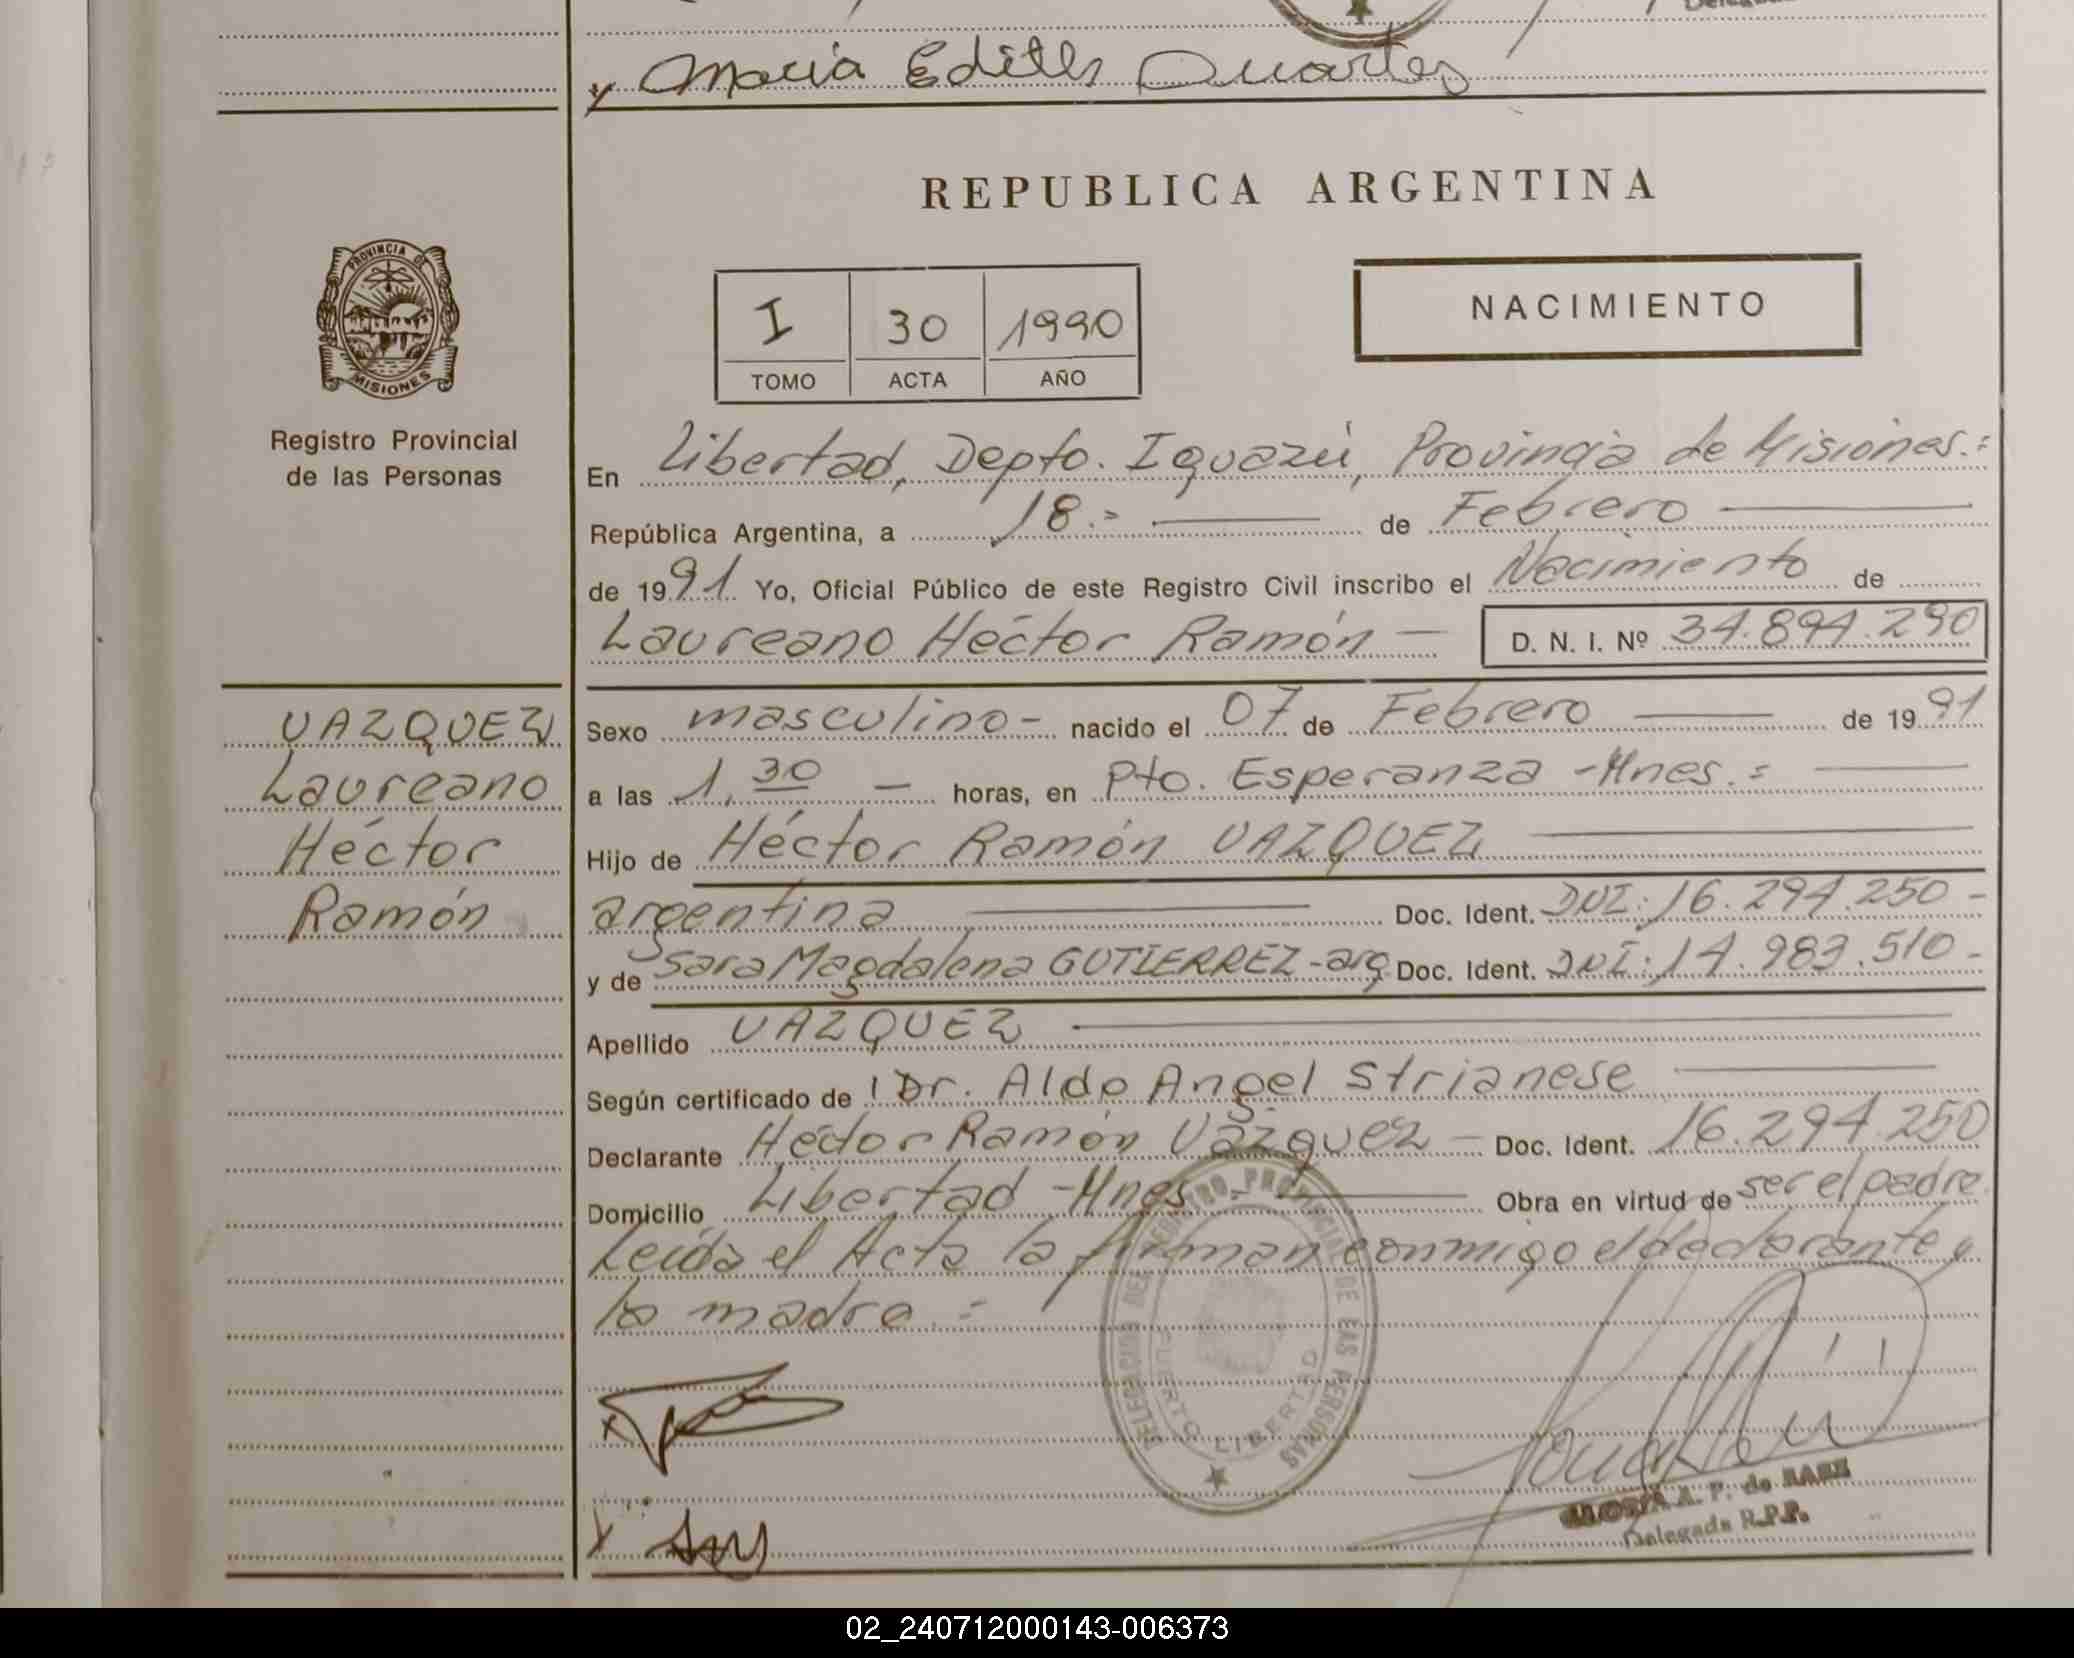 y Maria Edith Duartes
REPUBLICA ARGENTINA
PROVINCIA DE
MISIONES
Registro Provincial
de las Personas
I 30 1990
TOMO ACTA AÑO
NACIMIENTO
En Libertad, Depto. Iguazú, Provincia de Misiones.=
República Argentina, a 18.= de Febrero
de 1991 Yo, Oficial Público de este Registro Civil inscribo el Nacimiento de
Laureano Héctor Ramón — D. N. I. Nº 34.894.290
VAZQUEZ
Laureano
Héctor
Ramón
Sexo masculino- nacido el 07 de Febrero de 1991
a las 1,30 — horas, en Pto. Esperanza -Mnes.=
Hijo de Héctor Ramón VAZQUEZ
argentina Doc. Ident. DNI: 16.294.250-
y de Sara Magdalena GUTIERREZ -arg Doc. Ident. DNI: 14.983.510-
Apellido VAZQUEZ
Según certificado de Dr. Aldo Angel Strianese
Declarante Héctor Ramón Vázquez — Doc. Ident. 16.294.250
Domicilio Libertad -Mnes.- Obra en virtud de ser el padre
Leída el Acta la firman conmigo el declarante y
la madre.=
DELEGACION DEL REGISTRO PROVINCIAL DE LAS PERSONAS
PUERTO LIBERTAD
x
x
A. P. de
Delegada R.P.P.
02_240712000143-006373